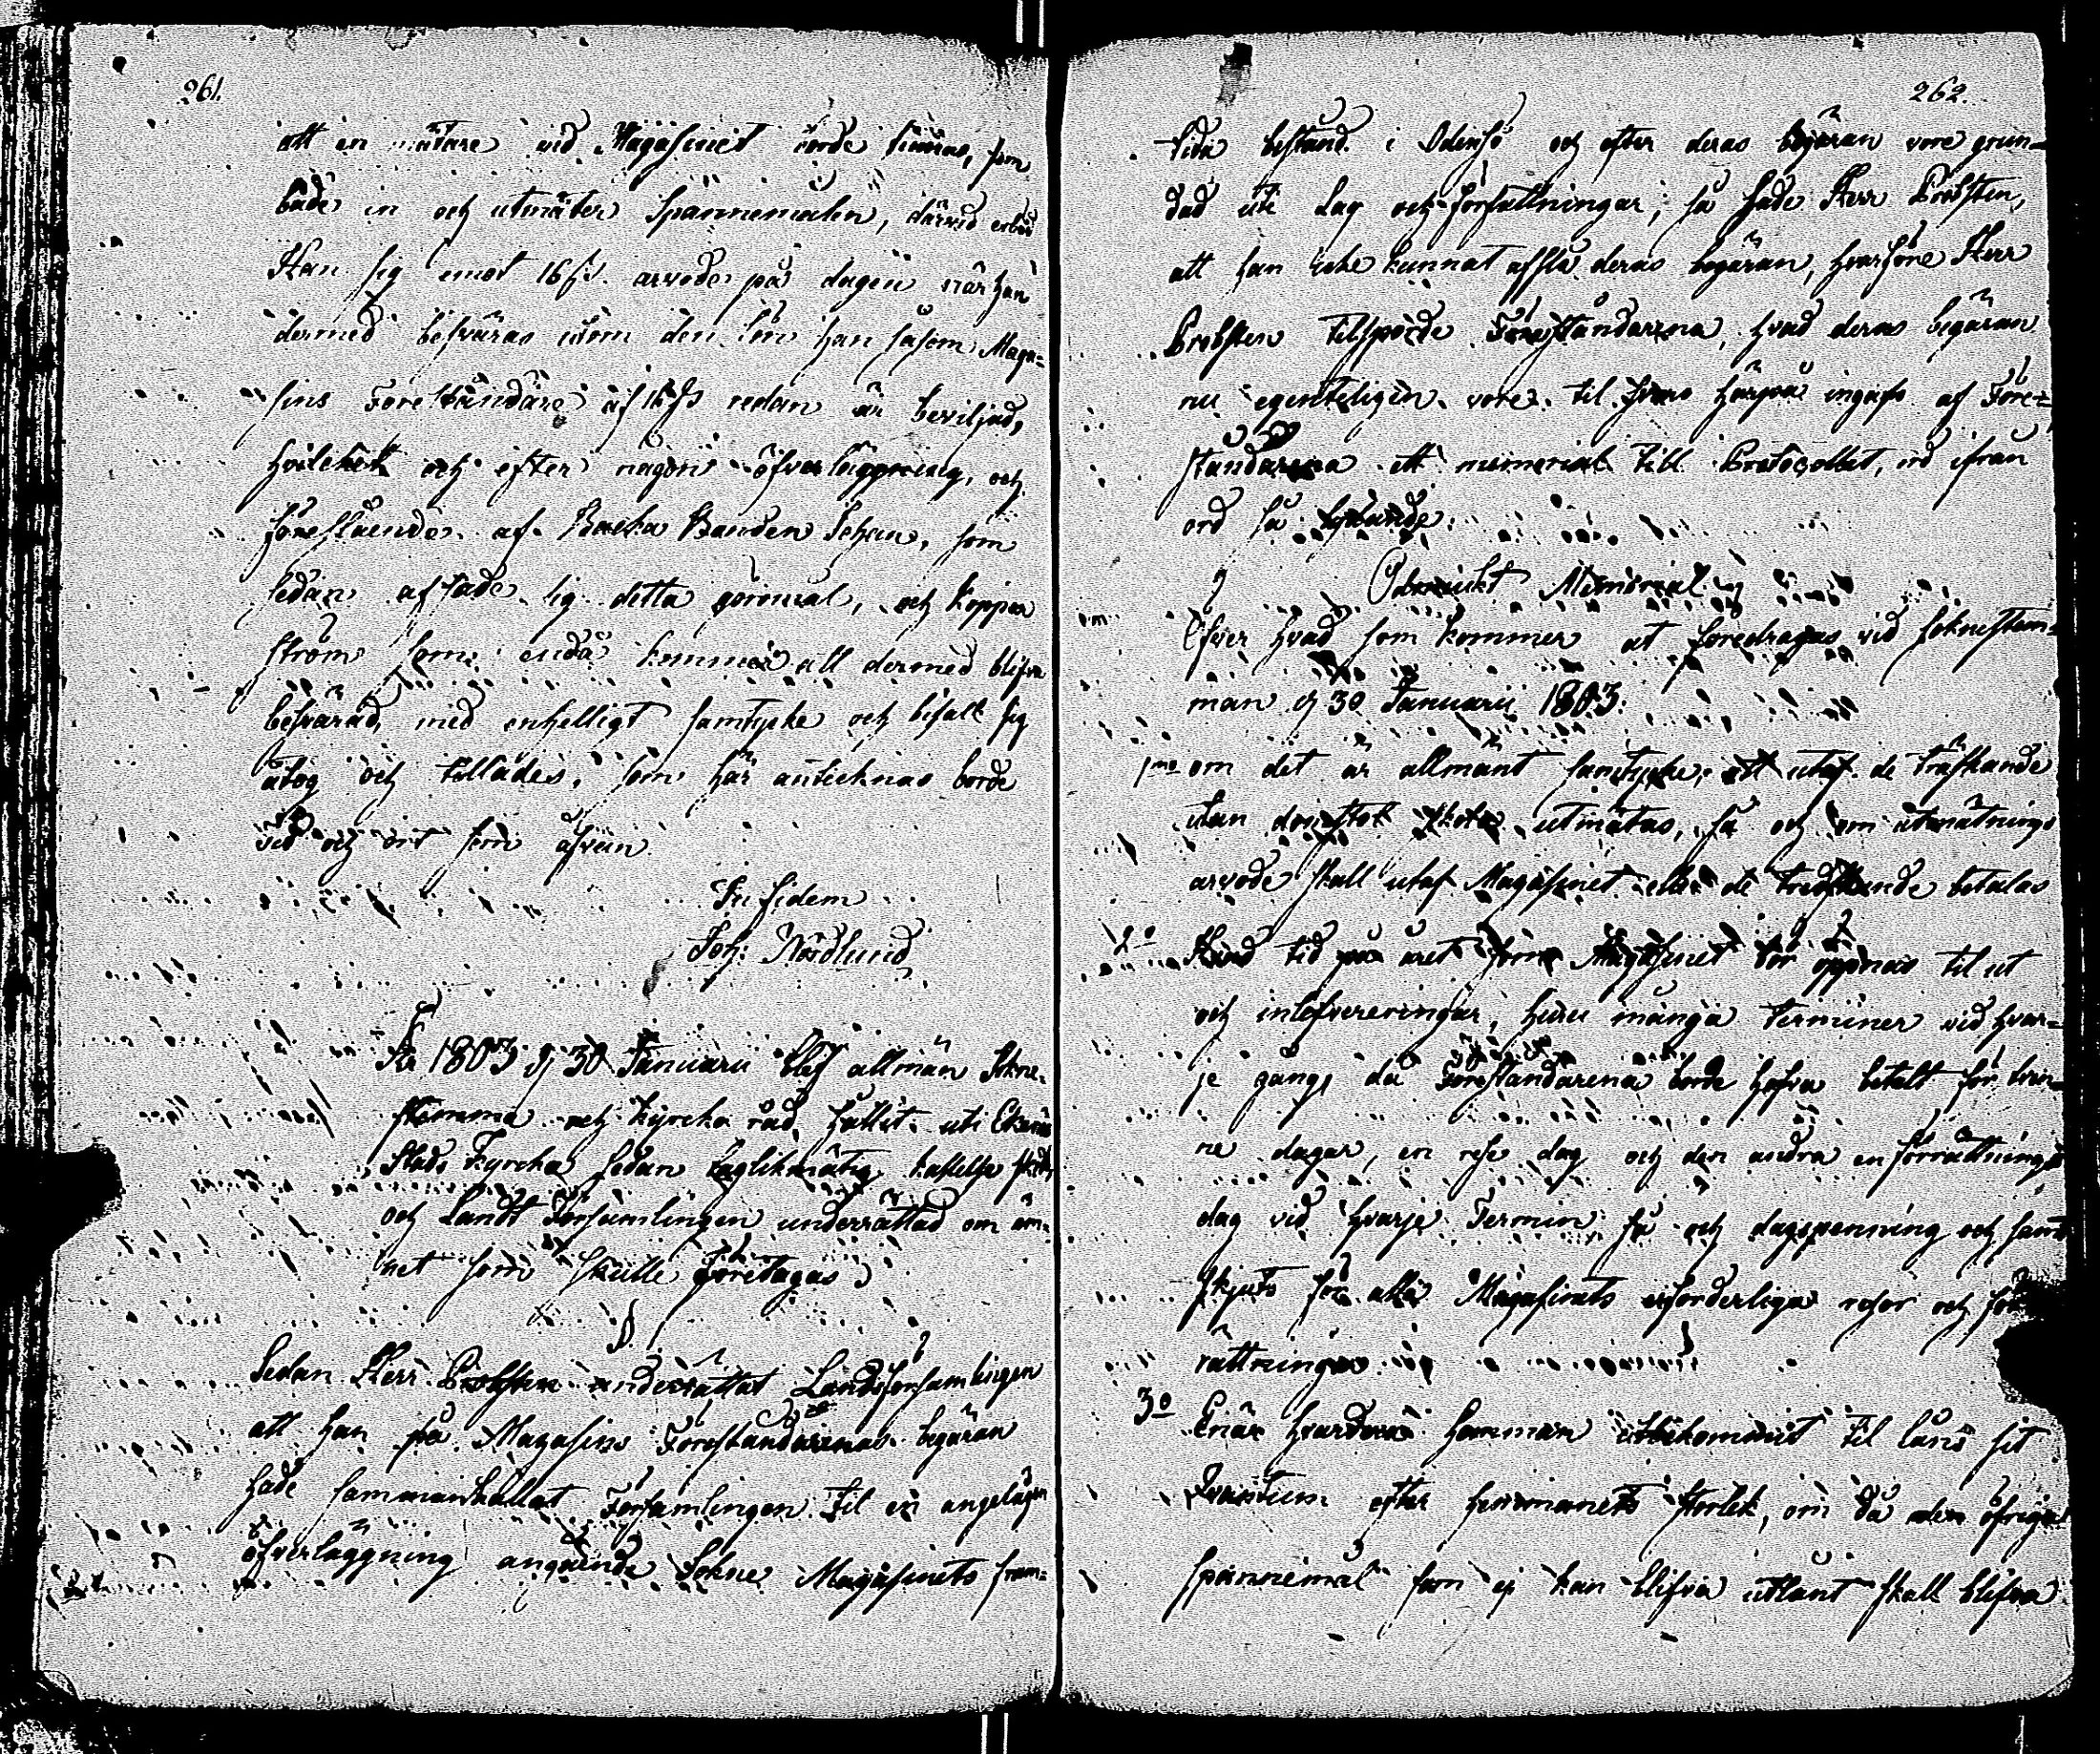 261.
att en mätare vid Magasinet borde finnas, som
både in och utmäter Spannemålen, därvid erböd
Han sig emot 16 s. arvode på dagen när han
dermed besväras utom den lön han såsom Maga-
sins Föreståndare af redan är beviljad,
hvilcket och efter någon öfverläggning, och
föreslående af Backa Bonden Johan, som
sedan afsade sig detta göromål, och Koppar
ström som endå kommer att dermed blifva
besvärad, med enhelligt samtycke och bifall sig
åtog och tillades, som här antecknas borde
Tid och ort som ofvan
In fidem
Joh: Nordlund
År 1803 d 30 Januarii blef allmän Sokne-
stemma och kyrcko råd hållit uti Ekenäs
Stads Kyrcka sedan laglikmätig kallelse skedt,
och Landt Församlingen underrättad om äm-
net som skulle företagas
§.
Sedan Herr Probsten underrättat Landsförsamlingen
att han på Magasins Föreståndarenas begäran
hade sammankallat Församlingen til en angelägen
öfverläggning angående Sokne Magasinets fram-
262.
tida bestånd i och efter deras begäran vore grun-
dad uti Lag och författningar, så sade Herr Probsten,
att han icke kunnat afslå deras begäran, hvarföre Herr
Probsten tilsporde Föreståndarena, hvad deras begäran
nu egenteligen vore. til svar härpå ingafs af Före-
ståndarena ett memorial till Protocollet, ord ifrån
ord så lydande:
Ödmiukt Memorial
Öfver hvad som kommer at föredragas vid soknestem-
man d 30 Januarii 1803:
1mo om det är allmänt samtycke, att utaf de
utan skola utmätas, så och om utmätnings
arvode skall utaf Magasinet eller de betalas
2o Hvad tid på året som Magasinet bör öppnas til ut
och inlefvereringar, huru många terminer vid hvar-
je gång, då Föreståndarena borde hafva betalt för
ne dagar, en rese dag och den andra en förrättnings
dag vid hvarje Termin så och dagspenning och samt
skjuts för alla Magasinets erforderliga resor och för-
rättningar
3o Enär hvardera hemman utbekommit til låns sit
Quantum efter hemmanets storlek, om då den öfriga
Spannemål som ej kan blifva utlånt skall blifva